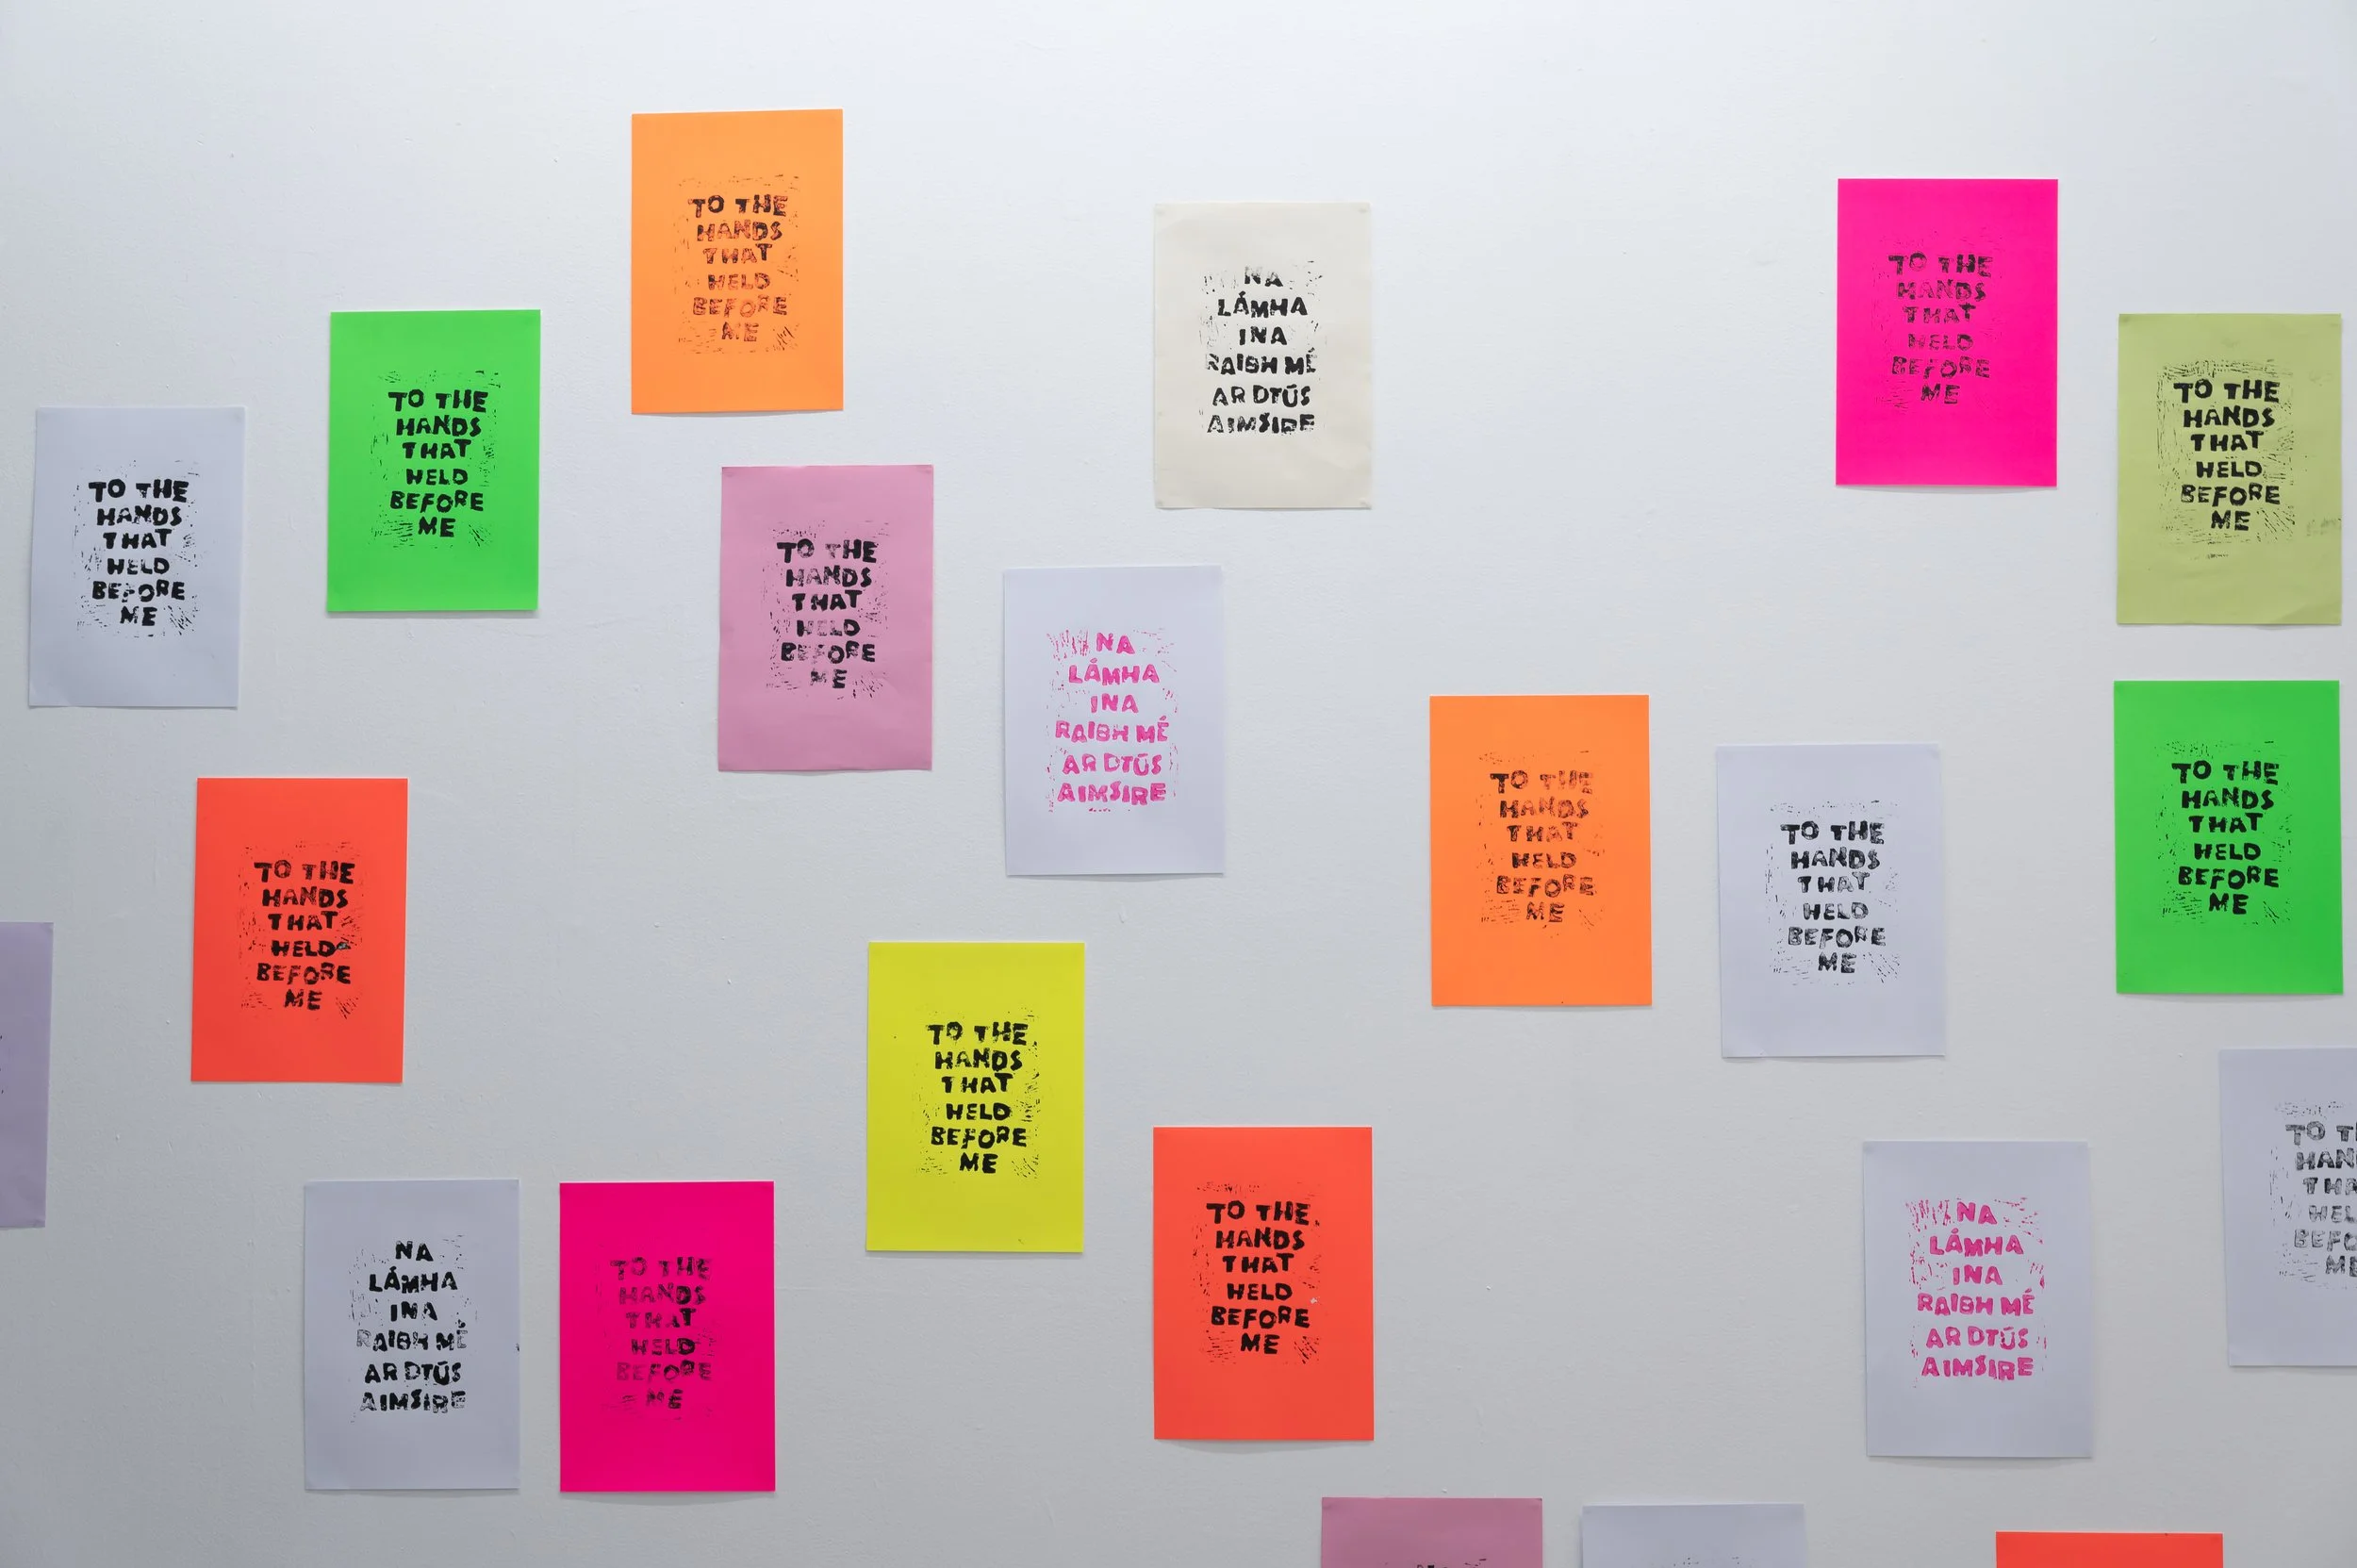 TO THE
HANDS
THAT
HELD
BEFORE
ME
NA
LÁMHA
INA
RAIBH MÉ
AR DTÚS
AIMSIRE
TO THE
HANDS
THAT
HELD
BEFORE
ME
TO THE
HANDS
THAT
HELD
BEFORE
ME
TO THE
HANDS
THAT
HELD
BEFORE
ME
TO THE
HANDS
THAT
HELD
BEFORE
ME
TO THE
HANDS
THAT
HELD
BEFORE
ME
NA
LÁMHA
INA
RAIBH MÉ
AR DTÚS
AIMSIRE
TO THE
HANDS
THAT
HELD
BEFORE
ME
TO THE
HANDS
THAT
HELD
BEFORE
ME
TO THE
HANDS
THAT
HELD
BEFORE
ME
TO THE
HANDS
THAT
HELD
BEFORE
ME
TO THE
HANDS
THAT
HELD
BEFORE
ME
TO THE
HANDS
THAT
HELD
BEFORE
ME
TO THE
HANDS
THAT
HELD
BEFORE
ME
NA
LÁMHA
INA
RAIBH MÉ
AR DTÚS
AIMSIRE
TO THE
HANDS
THAT
HELD
BEFORE
ME
NA
LÁMHA
INA
RAIBH MÉ
AR DTÚS
AIMSIRE
TO
ME